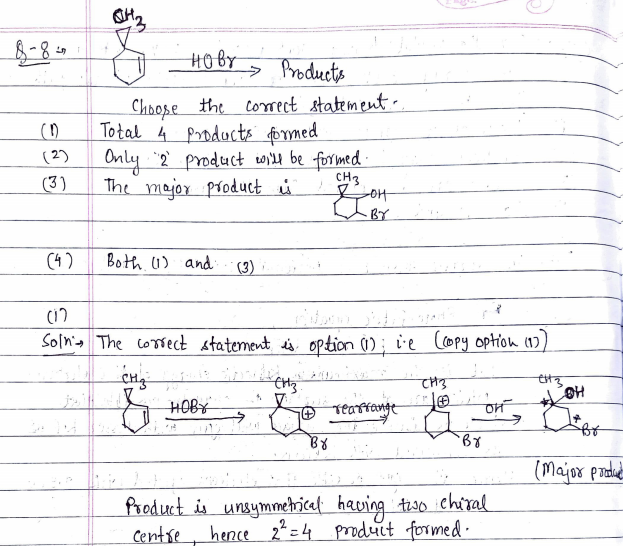 CH3
Q-8 ⇒ HOBr Products
Choose the correct statement.
(1) Total 4 products formed
(2) Only '2' product will be formed.
(3) The major product is CH3 OH Br
(4) Both (1) and (3)
(1)
Soln:→ The correct statement is option (1); i.e (copy option (1))
CH3 HOBr CH3 ⊕ Br rearrange CH3 ⊕ Br OH⁻ CH3 OH * * Br
(Major product
Product is unsymmetrical having two chiral
centre, hence 2²=4 product formed.